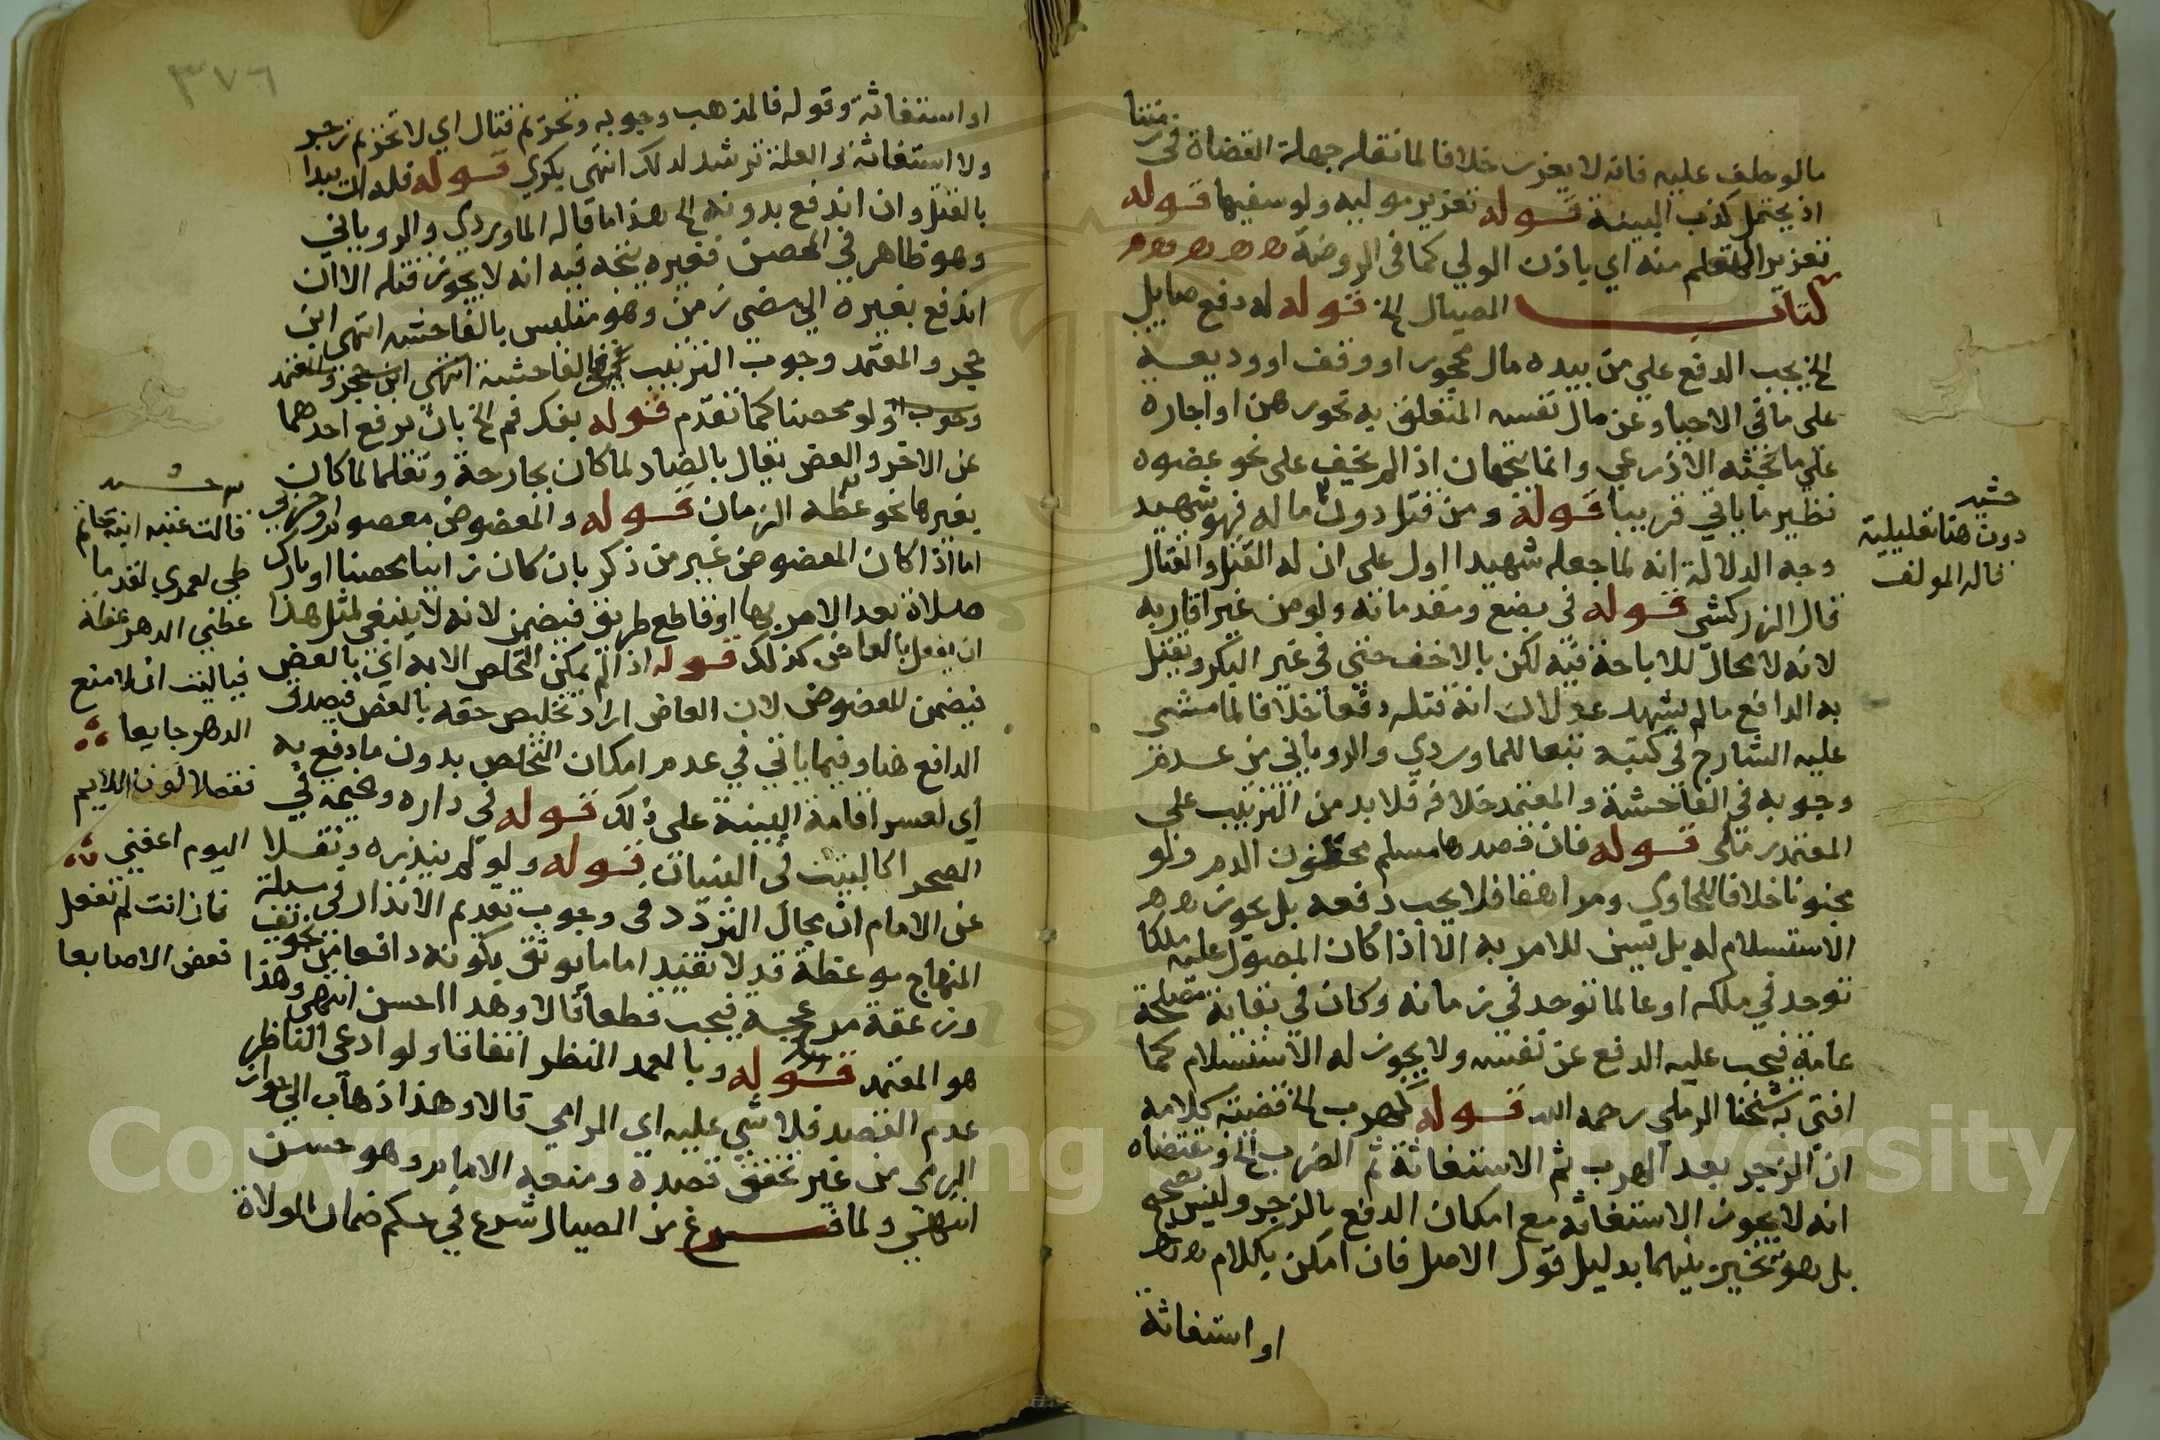 مالو حلف عليه فانه لا يعزر خلافا لما نقله جهلة القضاة في زمننا
اذ يحتمل كذب البينة قوله تعزير موليه ولو سفيها قوله
تعزير المتعلم منه اي باذن الولي كما في الروضة
كتاب الصيال الخ قوله له دفع صايل
الخ يجب الدفع علي من بيده مال محجور او وقف او وديعة
على ما في الاحيا وعن مال نفسه المتعلق به نحو رهن او اجارة
علي ما بحثه الاذرعي وانما يتجهان اذا لم يخف على نحو عضوه
نظير ما ياتي قريبا قوله ومن قتل دون ماله فهو شهيد
وجه الدلالة انه لما جعله شهيدا اول على ان له القتل والقتال
قال الزركشي قوله في بضع ومقدماته ولو من غير اقاربه
لانه لا مجال للاباحة فيه لكن بالاخف حتي في غير البكر ويقتل
به الدافع ما لم يشهد عدلان انه قتله دفعا خلافا لما مشي
عليه الشارح في كتبه تبعا للماوردي والروياني من عدم
وجوبه في الفاحشة والمعتمد خلافه فلا بد من الترتيب على
المعتمد رملي قوله فان قصدها مسلم محقون الدم ولو
مجنونا خلافا للحاوي ومراهقا فلا يجب دفعه بل يجوز
الاستسلام له بل يسن للامر به الا اذا كان المصول عليه ملكا
توحد في ملكه او عالما توحد في زمانه وكان في بقائه مصلحة
عامة فيجب عليه الدفع عن نفسه ولا يجوز له الاستسلام كما
افتي به شيخنا الرملي رحمه الله قوله كهرب الخ قضية كلامه
ان الزجر بعد الهرب ثم الاستغاثة ثم الضرب الخ ومقتضاه
انه لا يجوز الاستغاثه مع امكان الدفع بالزجر وليس صحيح
بل هو تخيير بينهما بدليل قول الاصل فان امكن بكلام
او استغاثة
حشيه
دون هنا تعليلية
قاله المولف
٣٧٦
او استغاثة وقوله فالمذهب وجوبه وتحريم قتال اي لا تحريم زجر
ولا استغاثة والعلة ترشد لذلك انتهي بكري قوله فله ان يبدا
بالقتل وان اندفع بدونه الخ هذا ما قاله الماوردي والروياني
وهو ظاهر في المحصن فغيره يتجه فيه انه لا يجوز قتله الا ان
اندفع بغيره الي مضي زمن وهو متلبس بالفاحشه انتهي ابن
حجر والمعتمد وجوب الترتيب في الفاحشة انتهي ابن حجر والمعتمد
وجوب ولو محصنا كما تقدم قوله بفك فم الخ بان يرفع احدهما
عن الاخر والعض يقال بالضاد لما كان بجارحة وتقلما لما كان
بغيرها نحو عظه الزمان قوله والمعضوض معصوم او حربي
اما اذا كان المعضوض غير من ذكر بان كان زانيا محصنا او تارك
صلاة بعد الامر بها او قاطع طريق فيضمن لانه لا ينبغي لمثل هذا
ان يفعل بالعاض كذلك قوله اذ الم يمكن التخلص الا به اي بالعض
فيضمن المعضوض لان العاض اراد تخليص حقه بالعض فيصدق
الدافع هنا وفيما ياتي في عدم امكان التخلص بدون ما دفع به
اي لعسر اقامة البينة على ذلك قوله في داره وخيمة في
الصحرا كالبيت في البنيان قوله ولو لم ينذره ونقلا
عن الامام ان مجال التردد في وجوب تقديم الانذار في مسيلة
المنهاج موعظة قد لا تفيد اما ما يوثق بكونه دافعا من تخويف
وزعقة مزعجة فيجب قطعا قالا وهذا احسن انتهي وهذا
هو المعتمد قوله وبالعمد النظر اتفاقا ولو ادعي الناظر
عدم القصد فلا شي عليه اي الرامي قالا وهذا ذهاب الي جواز
الرمي من غير تحقق قصده ومنعه الامام وهو حسن
انتهي ولما فرغ من الصيال شرع في حكم ضمان الولاة
حشيه
قالت عنبه ابنة حاتم
طي لعمري لقد ما
عظني الدهر عظة
فياليت ان لا امنع
الدهر جايعا
فقلا لهذا اللايم
اليوم اعفني
فان انت لم تفعل
فعض الاصابعا
Copyright © King Saud University